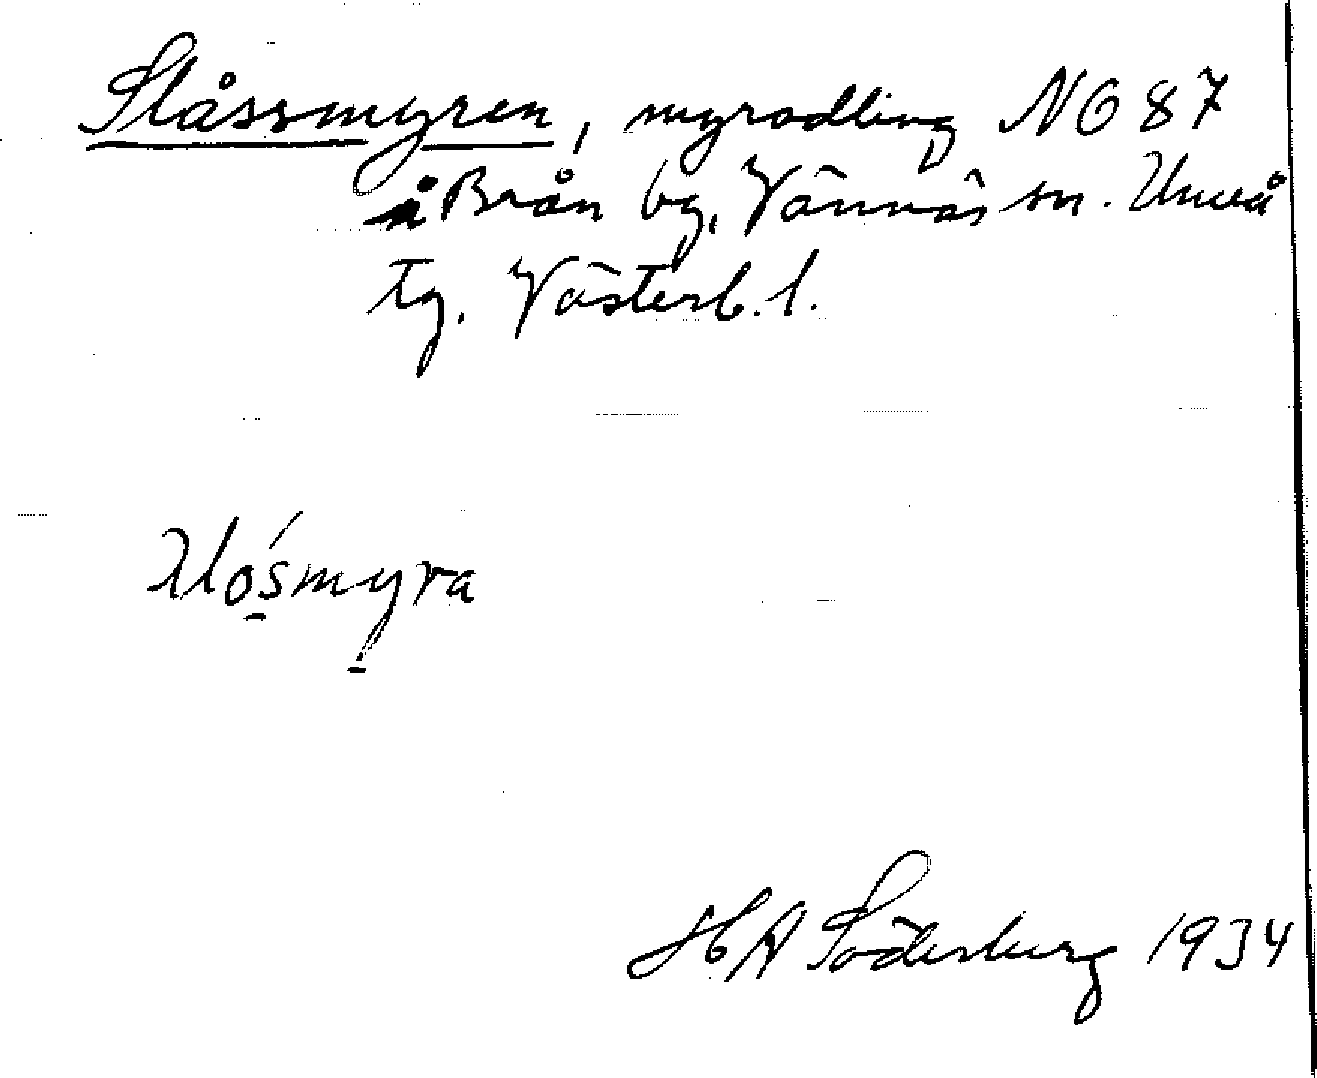 Slåssmyren, myrodling NO 87
å Brån by, Vännäs sn. Umeå
tg. Västerb. l.
Slo̠śmy̠ra
HA Söderberg 1934